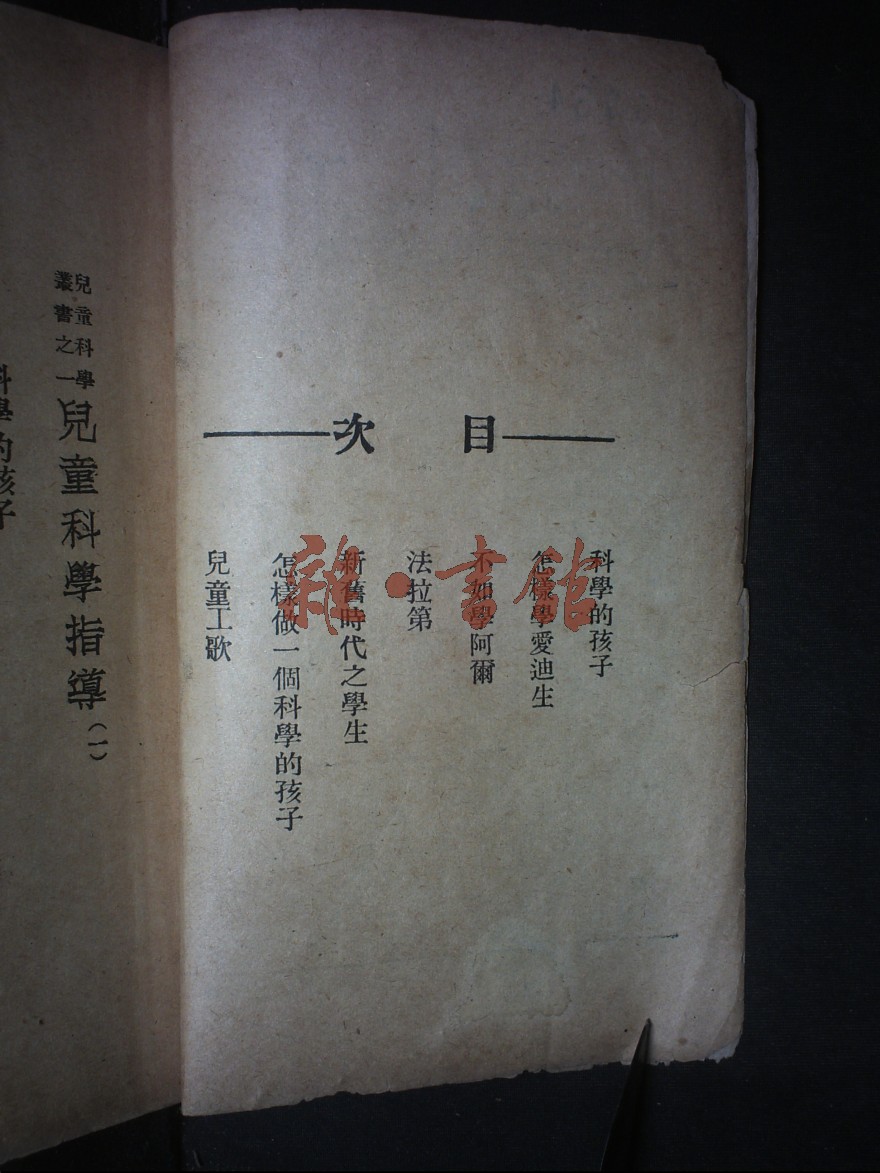 目次
科學的孩子
怎樣學愛迪生
不如學阿爾
法拉第
新舊時代之學生
怎樣做一個科學的孩子
兒童工歌
兒童科學
叢書之一
兒童科學指導(一)
科學的孩子
雜·書館